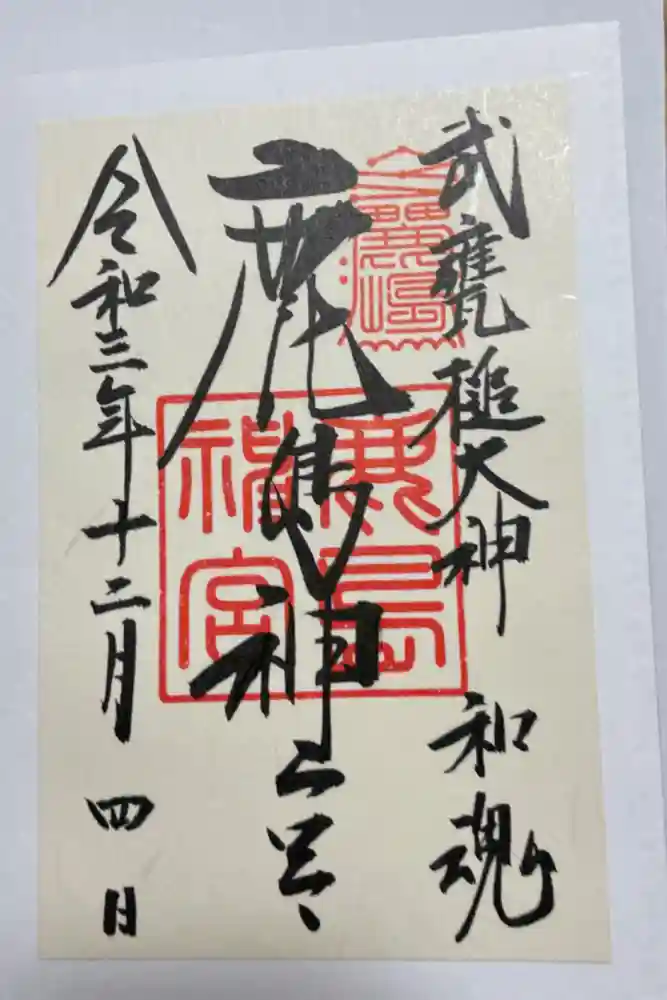 武甕槌大神 和魂
鹿島神宮
令和三年十二月 四日
鹿嶋
鹿島神宮